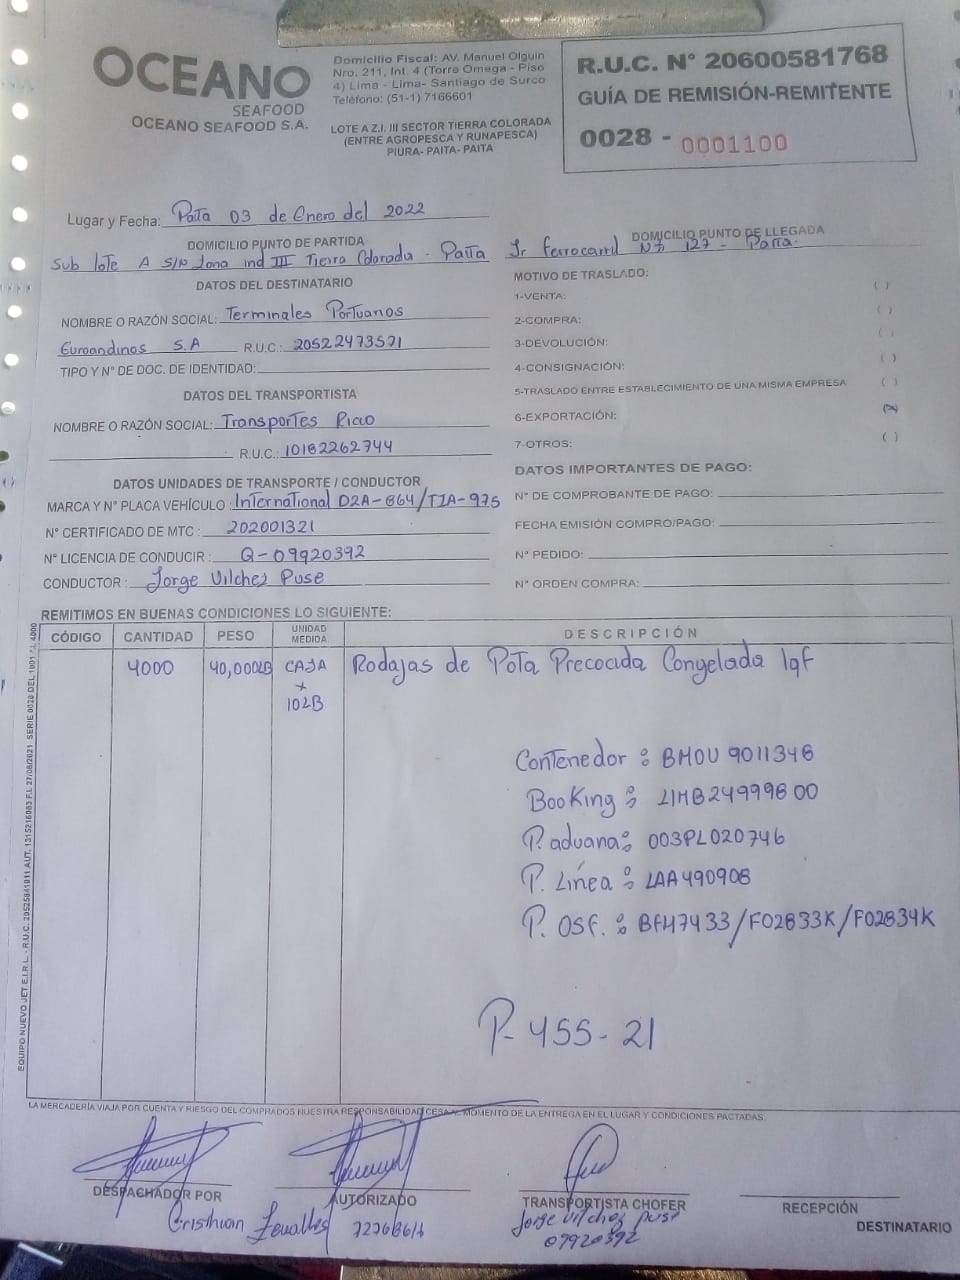 OCEANO
SEAFOOD
OCEANO SEAFOOD S.A.
Domicilio Fiscal: AV. Manuel Olguin
Nro. 211, Int. 4 (Torre Omega - Piso
4) Lima - Lima- Santiago de Surco
Teléfono: (51-1) 7166601
LOTE A Z.I. III SECTOR TIERRA COLORADA
(ENTRE AGROPESCA Y RUNAPESCA)
PIURA- PAITA- PAITA
R.U.C. N° 20600581768
GUÍA DE REMISIÓN-REMITENTE
0028 - 0001100
Lugar y Fecha: Paita 03 de Enero del 2022
DOMICILIO PUNTO DE PARTIDA
Sub lote A S/N Zona ind III Tierra Colorada - Paita
DOMICILIO PUNTO DE LLEGADA
Jr Ferrocarril N° 127 - Paita.
DATOS DEL DESTINATARIO
NOMBRE O RAZÓN SOCIAL: Terminales Portuanos
Euroandinos S.A R.U.C.: 20522473571
TIPO Y N° DE DOC. DE IDENTIDAD:
DATOS DEL TRANSPORTISTA
NOMBRE O RAZÓN SOCIAL: Transportes Ricco
R.U.C.: 10182262744
DATOS UNIDADES DE TRANSPORTE / CONDUCTOR
MARCA Y N° PLACA VEHÍCULO: International D2A-864/TIA-975
N° CERTIFICADO DE MTC: 202001321
N° LICENCIA DE CONDUCIR: Q-09920392
CONDUCTOR: Jorge Vilchez Puse
MOTIVO DE TRASLADO:
1-VENTA: ( )
2-COMPRA: ( )
3-DEVOLUCIÓN: ( )
4-CONSIGNACIÓN: ( )
5-TRASLADO ENTRE ESTABLECIMIENTO DE UNA MISMA EMPRESA ( )
6-EXPORTACIÓN: (x)
7-OTROS: ( )
DATOS IMPORTANTES DE PAGO:
N° DE COMPROBANTE DE PAGO:
FECHA EMISIÓN COMPRO/PAGO:
N° PEDIDO:
N° ORDEN COMPRA:
REMITIMOS EN BUENAS CONDICIONES LO SIGUIENTE:
CÓDIGO CANTIDAD PESO UNIDAD MEDIDA DESCRIPCIÓN
4000 40,000LB CAJA Rodajas de Pota Precocida Congelada Iqf
x
10LB
Contenedor : BMOU 9011348
Booking : LIMB24999800
P. aduana: 003PL020746
P. Línea : LAA490908
P. OSF. : BFH7433/F02833K/F02834K
P- 455- 21
EQUIPO NUEVO JET E.I.R.L. - R.U.C. 20525841011 AUT. 1315216083 F.I. 27/08/2021 SERIE 0028 DEL 1001 AL 4000
LA MERCADERÍA VIAJA POR CUENTA Y RIESGO DEL COMPRADOS NUESTRA RESPONSABILIDAD CESA AL MOMENTO DE LA ENTREGA EN EL LUGAR Y CONDICIONES PACTADAS.
DESPACHADOR POR
AUTORIZADO
TRANSPORTISTA CHOFER
RECEPCIÓN
DESTINATARIO
Cristhian Zevallos
Jorge Vilchez Puse
09920392